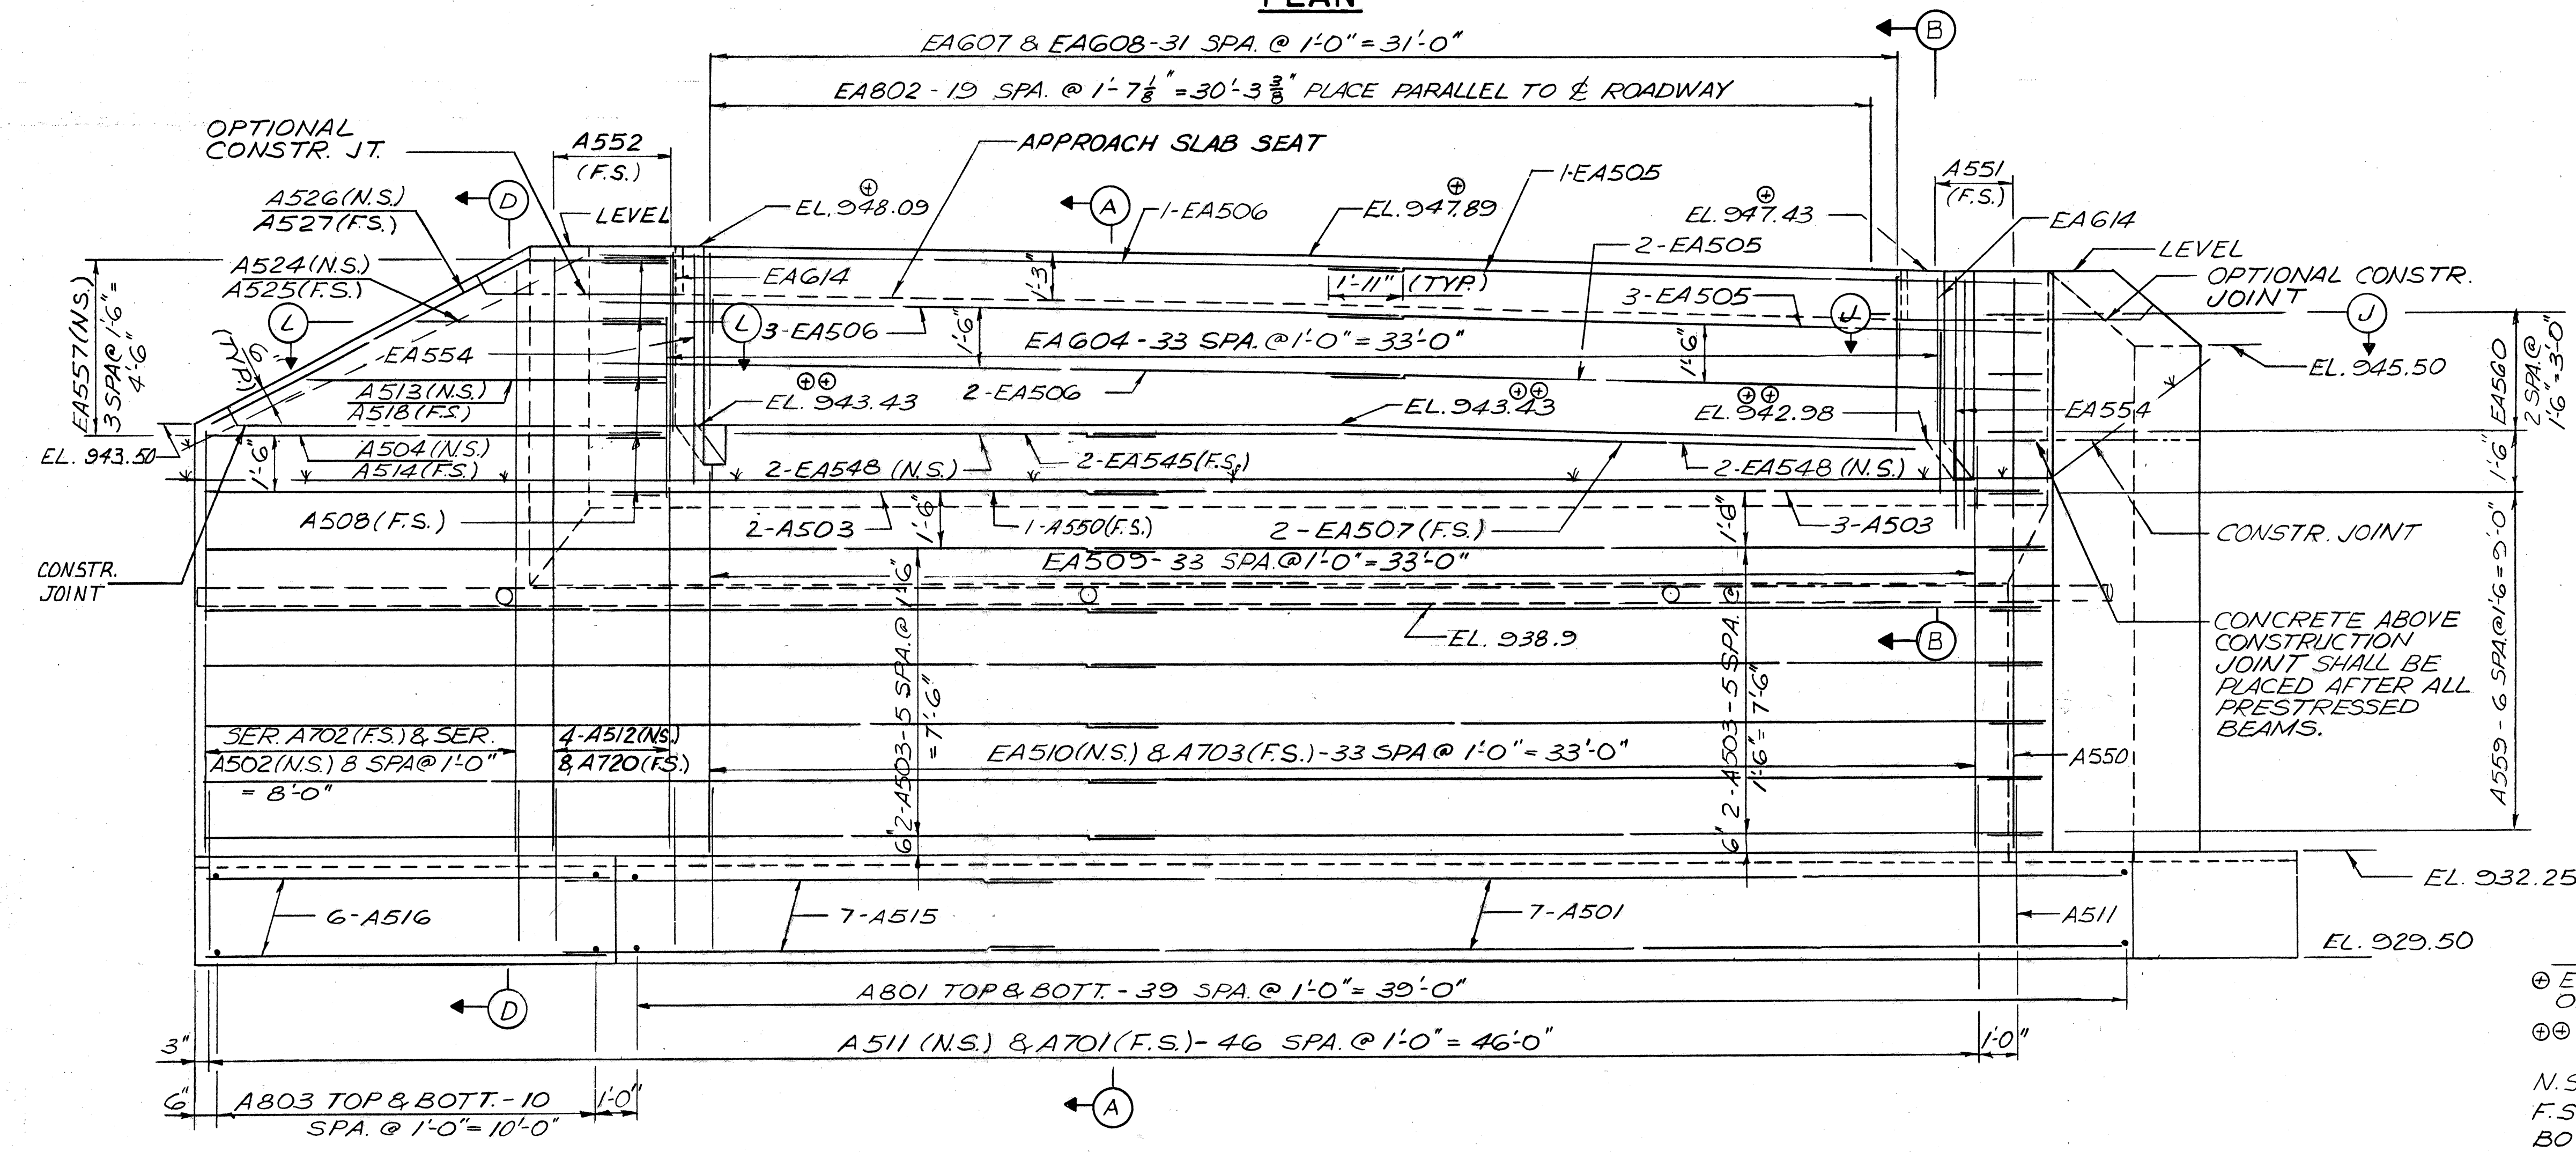 PLAN
EA607 & EA608-31 SPA. @ 1'-0" = 31'-0"
B
EA802 - 19 SPA. @ 1'-7 1/8" = 30'-3 3/8" PLACE PARALLEL TO ℄ ROADWAY
OPTIONAL
CONSTR. JT.
A552
(F.S.)
APPROACH SLAB SEAT
1-EA505
A551
(F.S.)
A526(N.S.)
A527(F.S.)
D
LEVEL
⊕
EL. 948.09
A
1-EA506
⊕
EL. 947.89
⊕
EL. 947.43
EA614
2-EA505
LEVEL
A524(N.S.)
A525(F.S.)
EA614
1'-3"
1'-11" (TYP.)
OPTIONAL CONSTR.
JOINT
EA557(N.S.)
3 SPA@ 1'-6" =
4'-6"
L
L
3-EA506
1'-6"
3-EA505
J
J
EA604-33 SPA. @ 1'-0" = 33'-0"
1'-6"
EA554
6"
(TYP.)
EL. 945.50
EA560
2 SPA. @
1'-6" = 3'-0"
A513(N.S.)
A518(F.S.)
⊕⊕
EL. 943.43
2-EA506
⊕⊕
EL. 943.43
⊕⊕
EL. 942.98
EA554
EL. 943.50
1'-6"
A504(N.S.)
A514(F.S.)
2-EA548 (N.S.)
2-EA545(F.S.)
2-EA548 (N.S.)
1'-6"
A508(F.S.)
2-A503
1'-6"
1-A550(F.S.)
2-EA507(F.S.)
1'-6"
3-A503
CONSTR. JOINT
CONSTR.
JOINT
EA509-33 SPA.@1'-0" = 33'-0"
EL. 938.9
B
CONCRETE ABOVE
CONSTRUCTION
JOINT SHALL BE
PLACED AFTER ALL
PRESTRESSED
BEAMS.
A559-6 SPA.@1'-6=9'-0"
6" 2-A503-5 SPA. @ 1'-6"
= 7'-6"
6" 2-A503-5 SPA. @
1'-6" = 7'-6"
SER. A702(F.S.) & SER.
A502(N.S.) 8 SPA@ 1'-0"
= 8'-0"
4-A512(N.S.)
& A720(F.S.)
EA510(N.S.) & A703(F.S.)-33 SPA @ 1'-0" = 33'-0"
A550
6-A516
7-A515
7-A501
A511
EL. 932.25
EL. 929.50
A801 TOP & BOTT. - 39 SPA. @ 1'-0" = 39'-0"
D
3"
A511 (N.S.) & A701(F.S.)- 46 SPA. @ 1'-0" = 46'-0"
1'-0"
6"
A803 TOP & BOTT. - 10
SPA. @ 1'-0" = 10'-0"
1'-0"
A
⊕ E
O
⊕⊕
N.S
F.S
BO